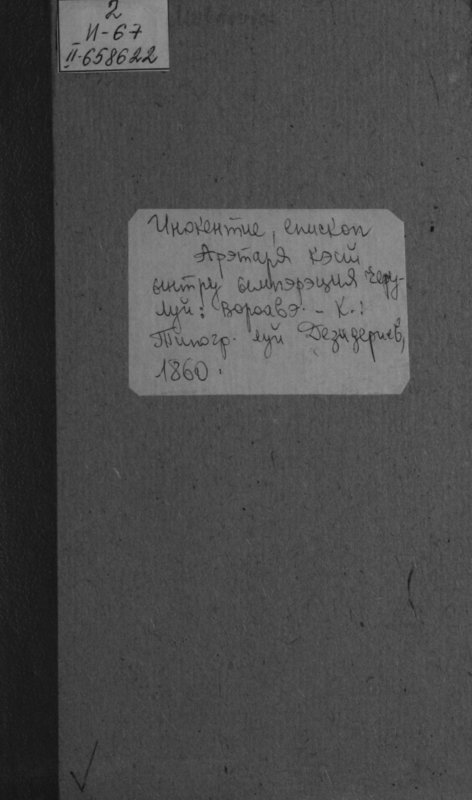 2
И-67
II-658622
Инокентие, епископ
Арэтаря кэсий
ынтру ымпэрэция черу-
луй: Вороавэ. - К.:
Типогр. луй Дезидериев,
1860.